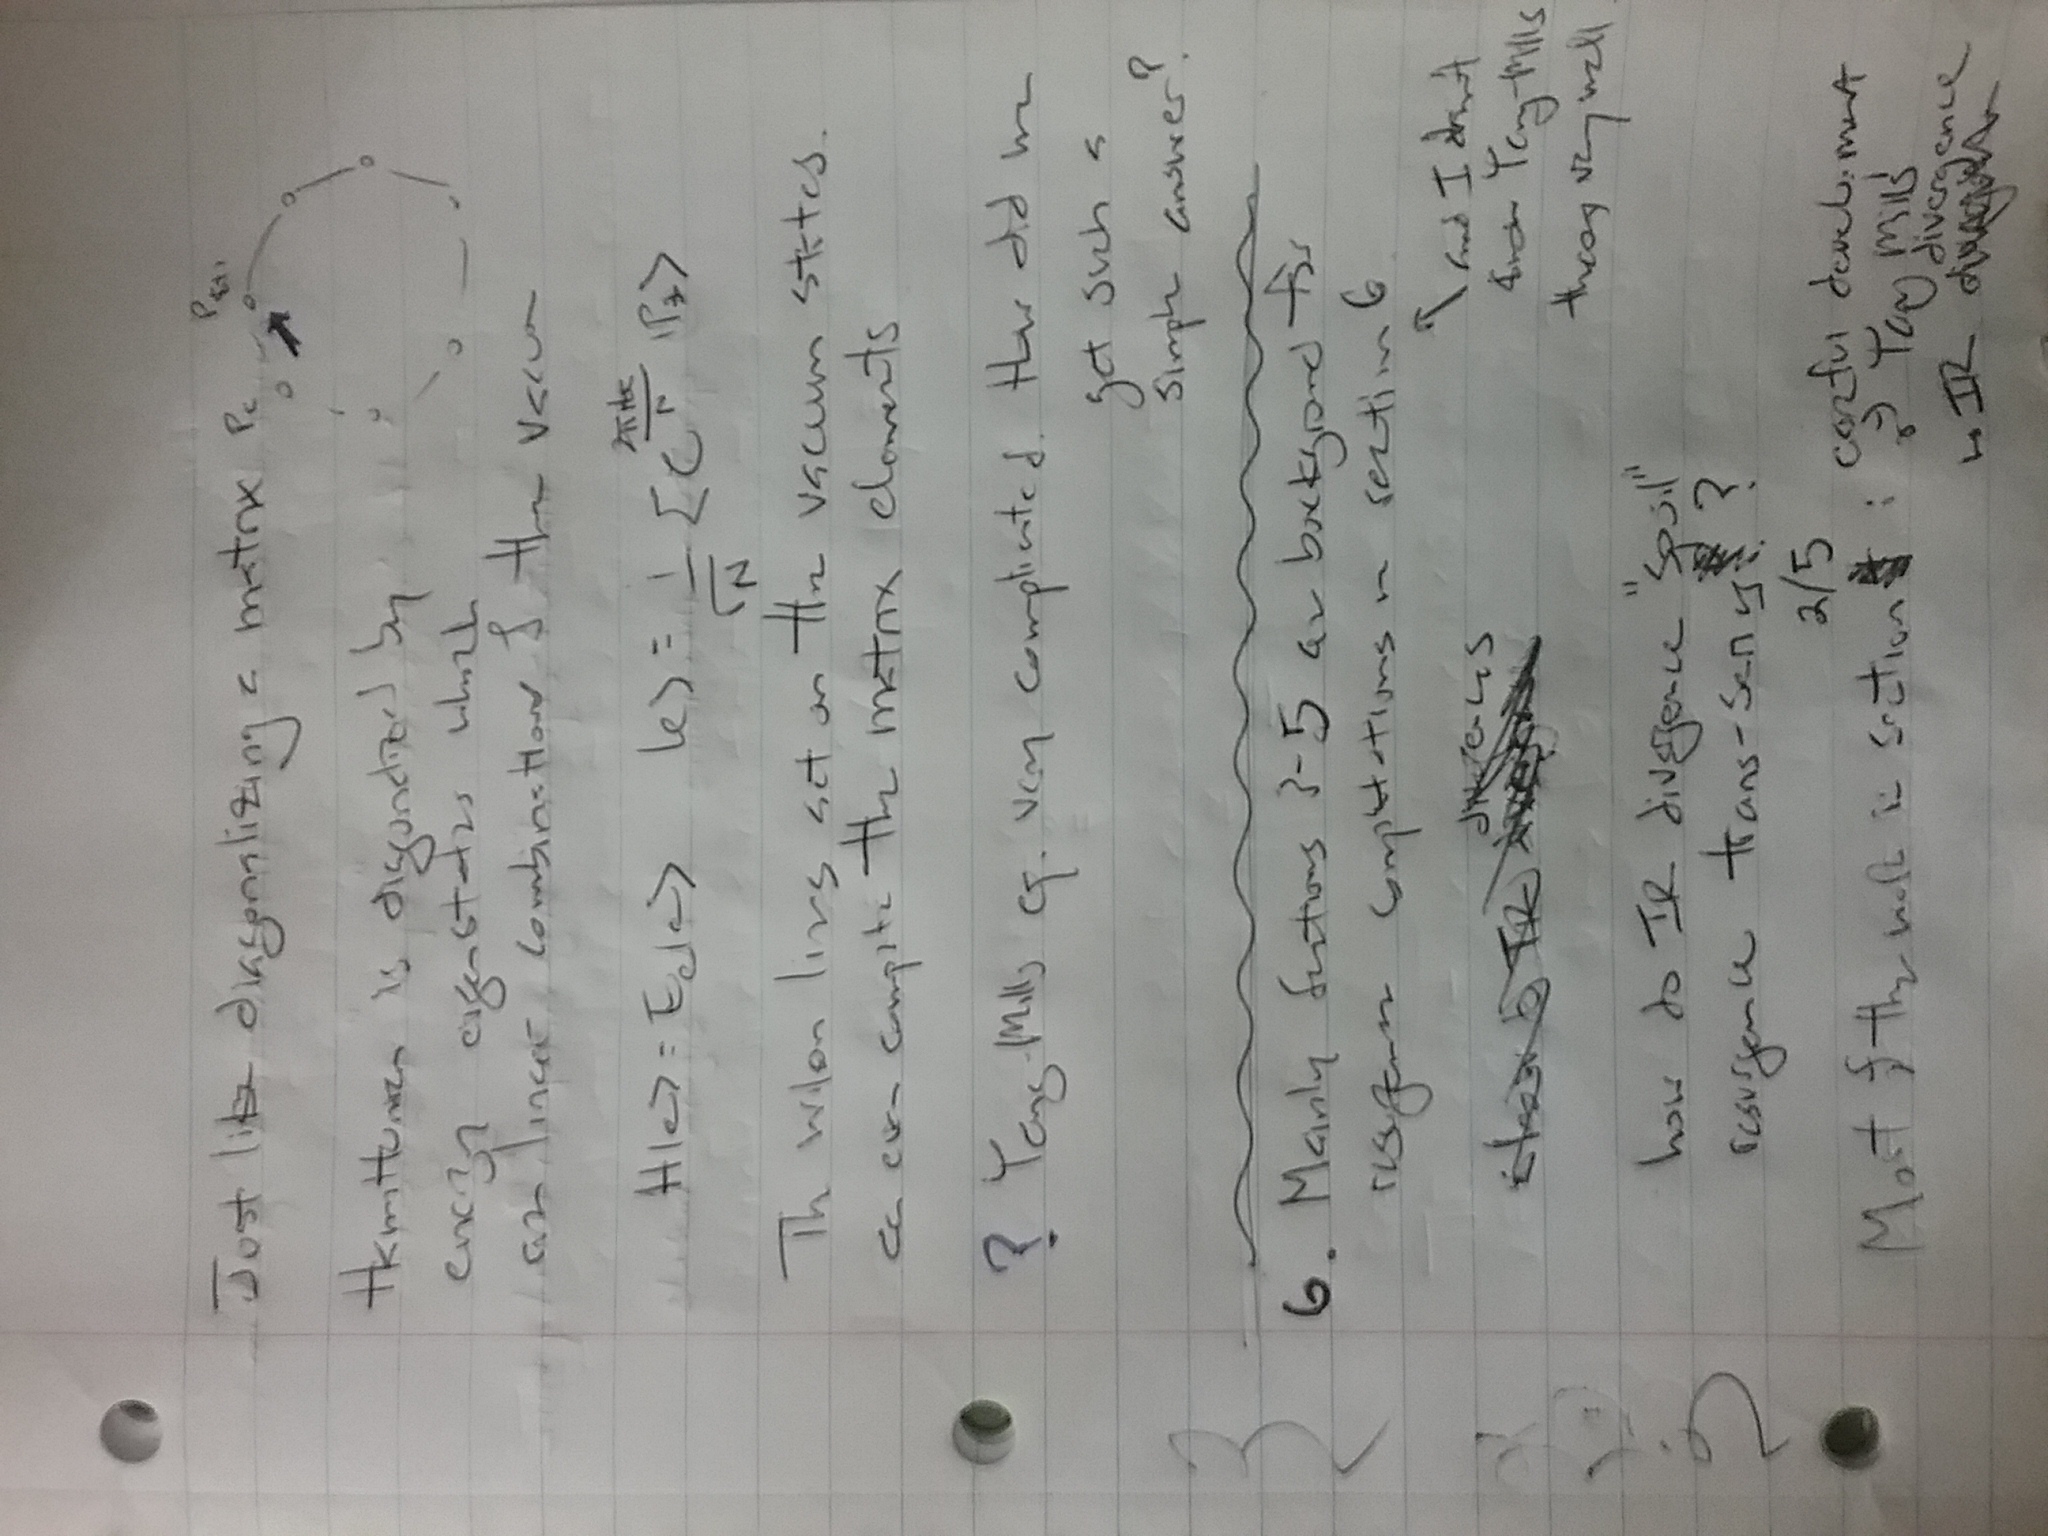 Just like diagonalizing a matrix
Hamiltonian is diagonalized by
energy eigenstates which
are linear combinations of the vacuum
H|e> = E_e|e> |e> = 1/√N Σ e^{2πitk/N} |P_k>
The wilson lines act on the vacuum states.
can even compute the matrix elements
? Yang-Mills eq. very complicated. How did we
get such a
simple answer?
6. Mainly sections 2-5 are background for
resurgence computations in section 6
↖ and I don't
know Yang-Mills
theory very well
divergences
how do IR divergence "spoil"
resurgence trans-series?
2/5
Most of the work in section : careful development
of Yang Mills
IR divergence